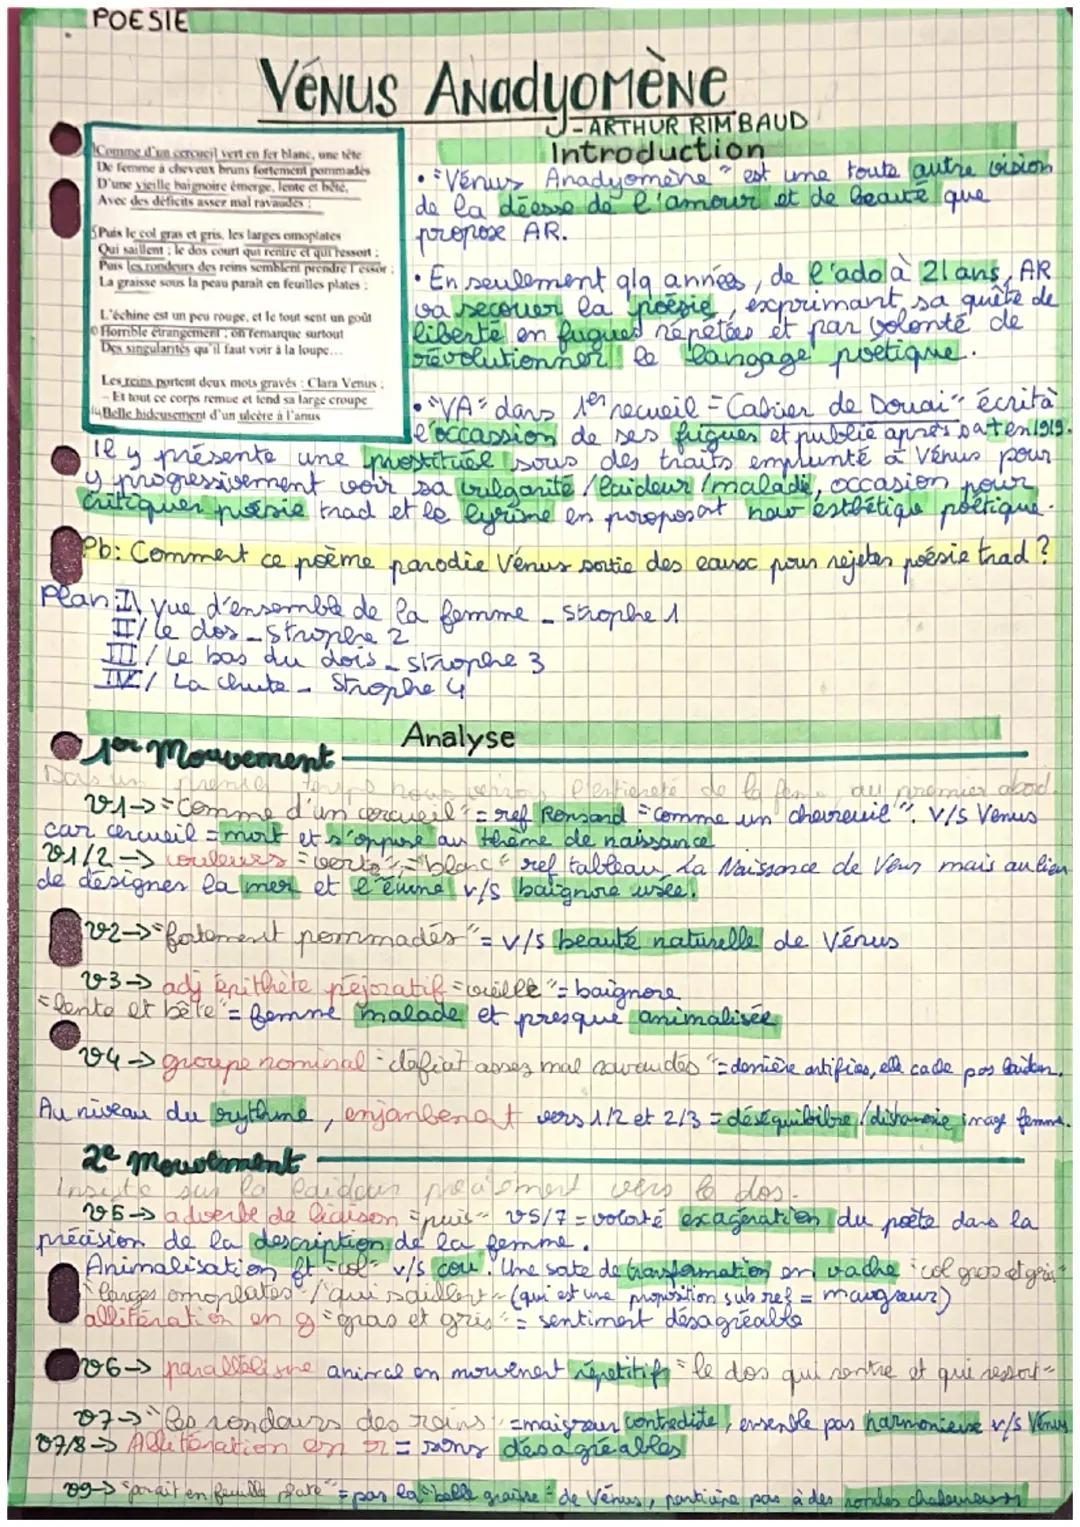 POESIE
VÉNUS ANADYOMÈNE
- ARTHUR RIMBAUD
Comme d'un cercueil vert en fer blanc, une tête
De femme à cheveux bruns fortement pommadés
D'une vieille baignoire émerge, lente et bête,
Avec des déficits assez mal ravaudés ;
5 Puis le col gras et gris, les larges omoplates
Qui saillent ; le dos court qui rentre et qui ressort ;
Puis les rondeurs des reins semblent prendre l'essor ;
La graisse sous la peau paraît en feuilles plates ;
L'échine est un peu rouge, et le tout sent un goût
Horrible étrangement ; on remarque surtout
Des singularités qu'il faut voir à la loupe...
Les reins portent deux mots gravés : Clara Venus ;
- Et tout ce corps remue et tend sa large croupe
Belle hideusement d'un ulcère à l'anus
Introduction
• "Vénus Anadyomène" est une toute autre vision
de la déesse de l'amour et de beauté que
propose AR.
• En seulement qlq années, de l'ado à 21 ans, AR
va secouer la poésie, exprimant sa quête de
liberté en fugues répétées et par volonté de
révolutionner le langage poétique.
• "VA" dans 1er recueil = Cahier de Douai" écrit à
l'occassion de ses fugues et publié après sa † en 1919.
Il y présente une prostituée sous des traits emprunté à Vénus pour
y progressivement voir sa vulgarité / laideur / maladie, occasion pour
critiquer poésie trad et le lyrisme en proposant nouv esthétique poétique.
Pb: Comment ce poème parodie Vénus sortie des eaux pour rejeter poésie trad ?
Plan: I\ vue d'ensemble de la femme - strophe 1
II/ Le dos - Strophe 2
III/ Le bas du dois - strophe 3
IV/ La chute - Strophe 4
Analyse
1er Mouvement
Dans un premier temps nous verrons l'entièreté de la femme au premier abord.
v1-> "Comme d'un cercueil" = ref Ronsard "comme un chevreuil". V/S Venus
car cercueil = mort et s'oppose au thème de naissance
v1/2 -> couleurs = "verts", "blanc" ref tableau La Naissance de Venus mais au lieu
de désigner la mer et l'écume v/s baignoire usée.
v2-> "fortement pommadés" = v/s beauté naturelle de Vénus
v3-> adj épithète péjoratif "vieille" = baignore
"lente et bête" = femme malade et presque animalisée
v4 -> groupe nominal "déficit assez mal ravaudés" = derrière artifices, elle cache pas laideur.
Au niveau du rythme, enjambement vers 1/2 et 2/3 = déséquilibre / disharmonie image femme.
2e mouvement
Insiste sur la laideur précisément vers le dos.
v5-> adverbe de liaison "puis" v5/7 = volonté exagération du poète dans la
précision de la description de la femme.
Animalisation ft "col" v/s cou. Une sorte de transformation en vache "col gras et gris"
"larges omoplates" / "qui saillent" (qui est une proposition sub rel = maigreur)
allitération en g "gras et gris" = sentiment désagréable
v6-> parallélisme animal en mouvement répétitif "le dos qui rentre et qui ressort"
v7-> "les rondeurs des reins" = maigreur contredite, ensemble pas harmonieux v/s Vénus
v7/8-> Allitération en r = sons désagréables
v9-> "parait en feuille plate" = pas la "belle graisse" de Vénus, pas à des rondes chaleureuses